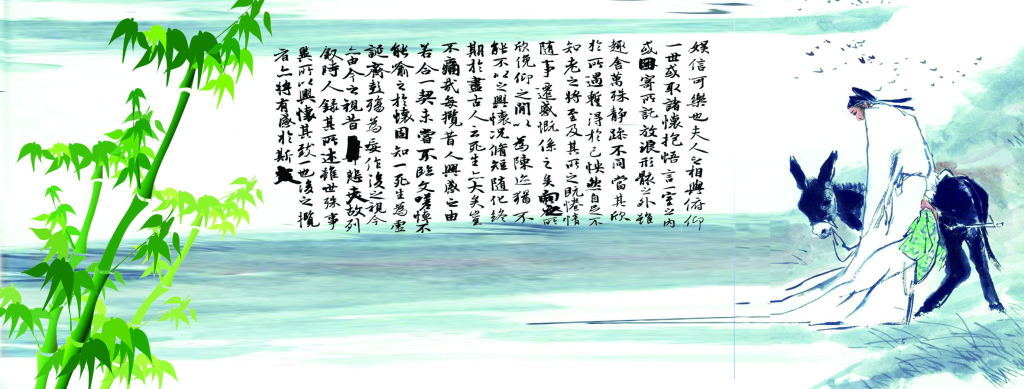 娱信可樂也夫人之相與俯仰
一世或取諸懷抱悟言一室之內
或因寄所託放浪形骸之外雖
趣舍萬殊靜躁不同當其欣
於所遇暫得於己快然自足不
知老之將至及其所之既惓情
隨事遷感慨係之矣向之所
欣俛仰之閒以為陳迹猶不
能不以之興懷況脩短隨化終
期於盡古人云死生亦大矣豈
不痛哉每攬昔人興感之由
若合一契未嘗不臨文嗟悼不
能喻之於懷固知一死生為虛
誕齊彭殤為妄作後之視今
亦由今之視昔悲夫故列
敘時人錄其所述雖世殊事
異所以興懷其致一也後之攬
者亦將有感於斯文